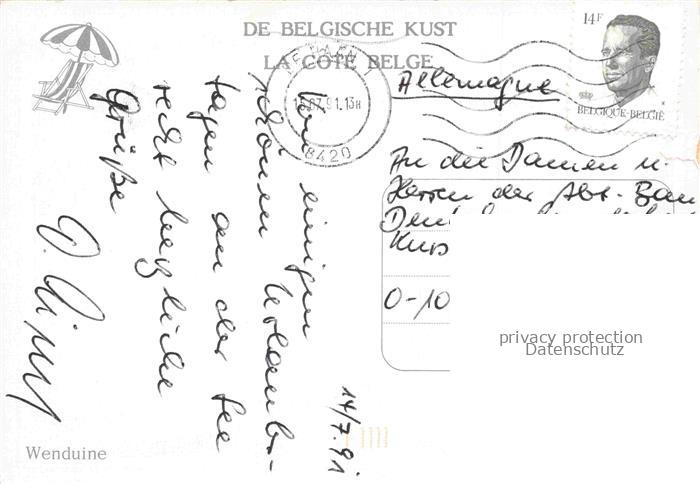 DE BELGISCHE KUST
LA CÔTE BELGE
14F
BELGIQUE-BELGIË
15.07.91.13H
8420
14/7.91
Von einigen
schönen Urlaubs-
tagen an der See
recht herzliche
Grüße
Allemagne
An die Damen u.
Herren der Abt. Bau
Kurs
O-10
privacy protection
Datenschutz
Wenduine